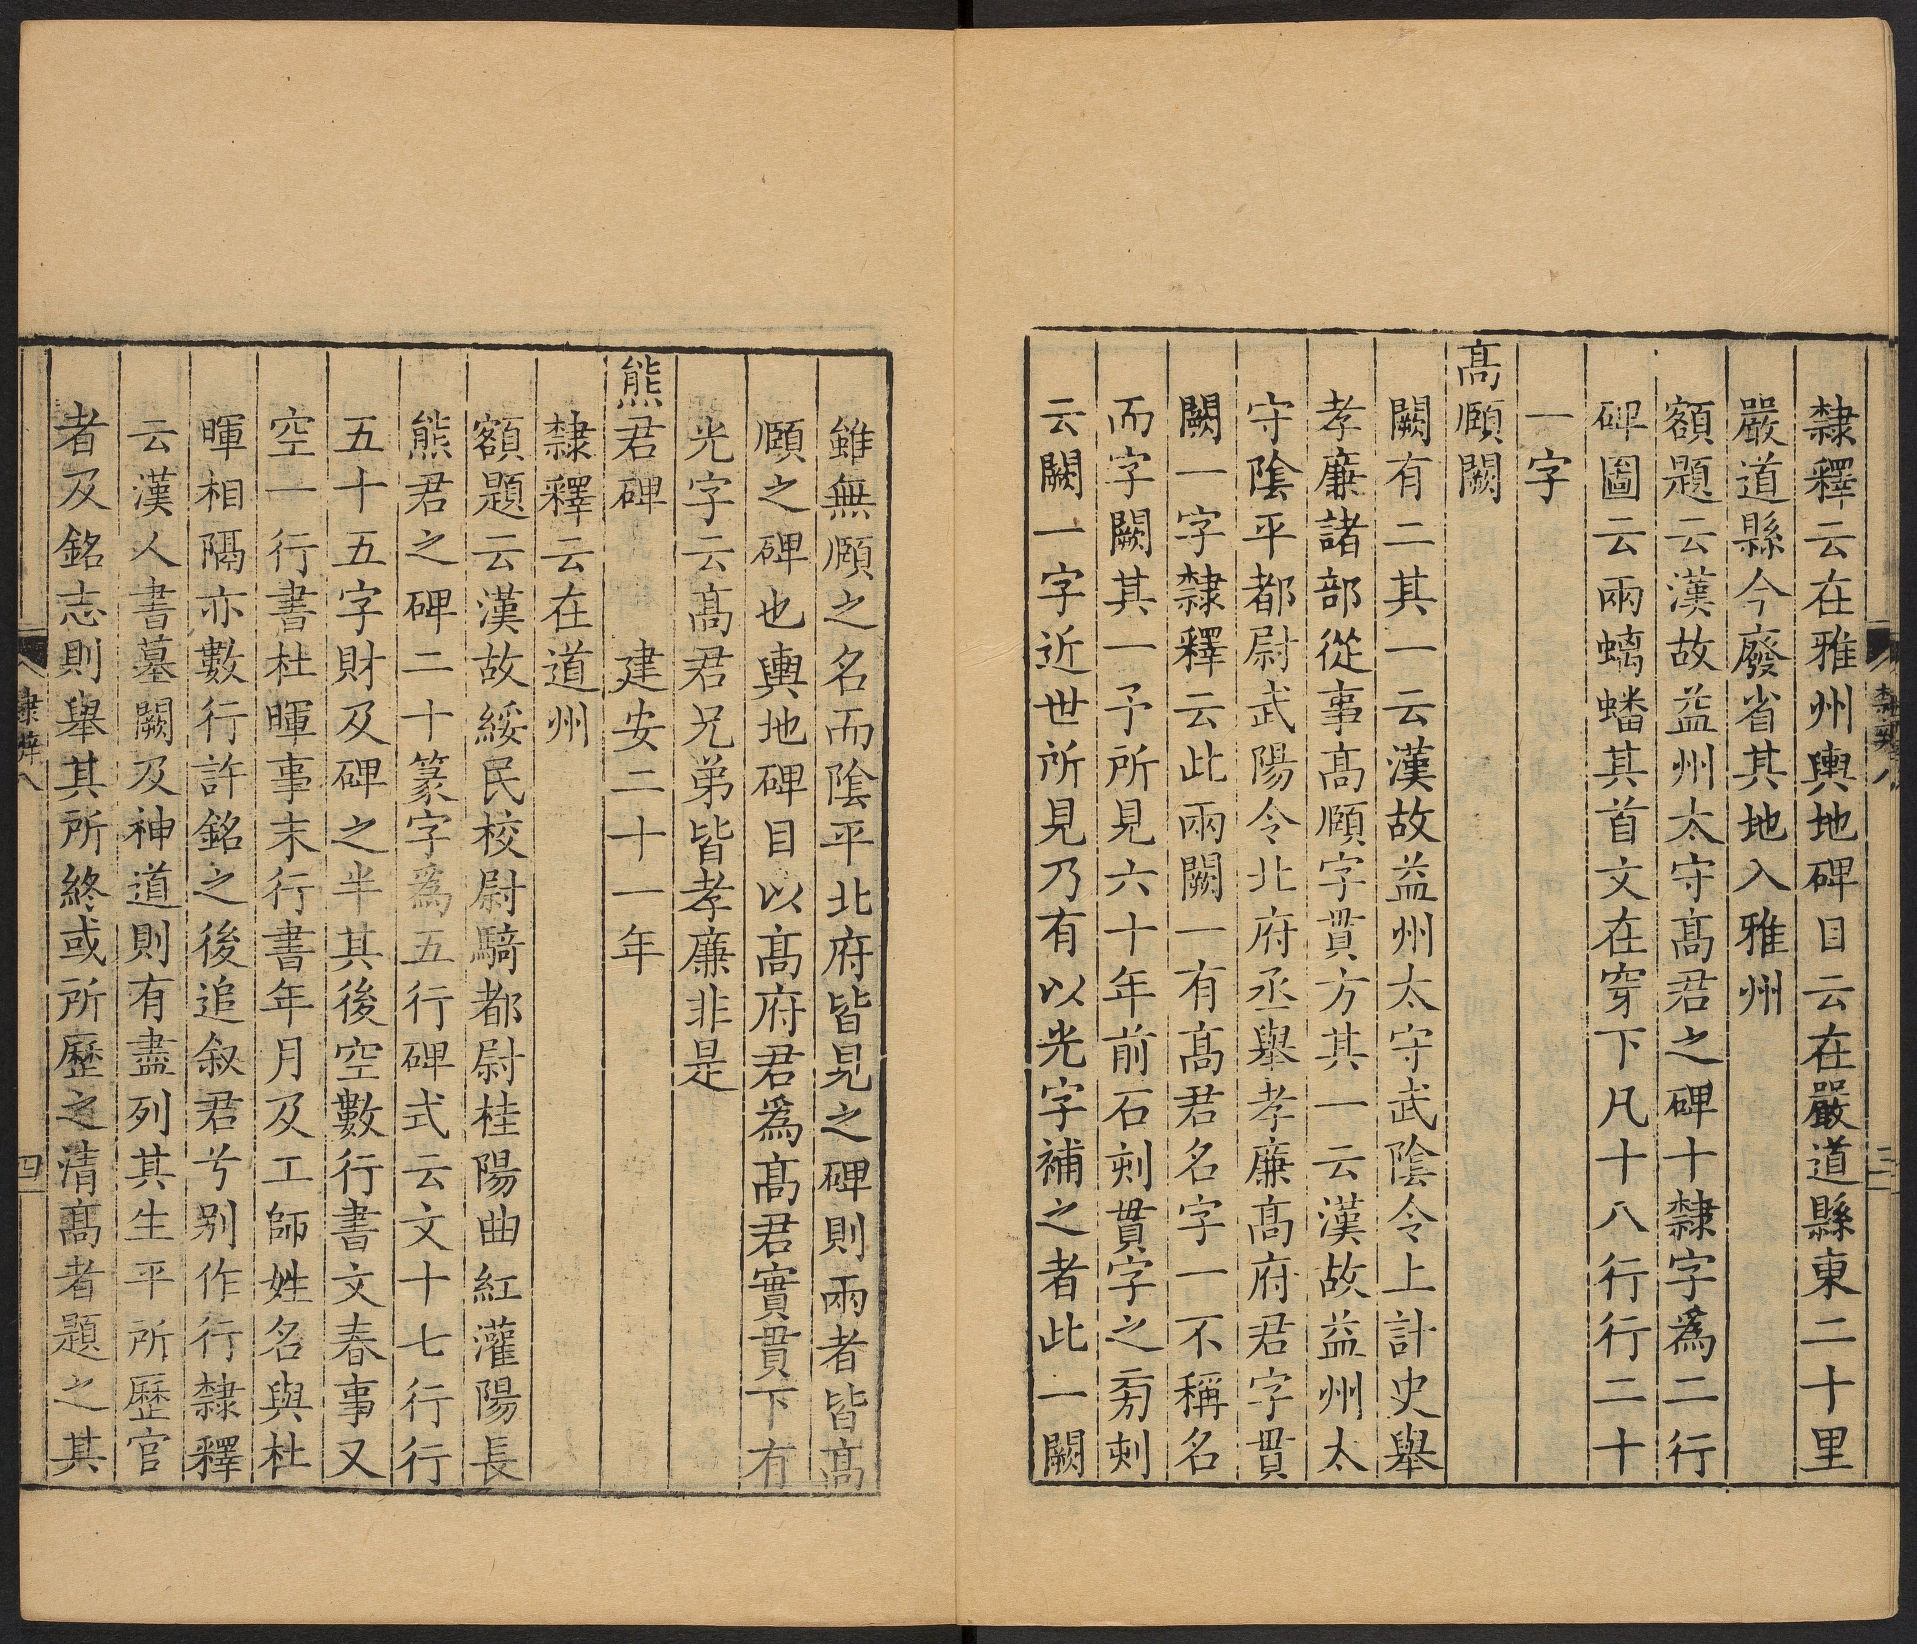 隸釋云在雅州輿地碑目云在嚴道縣東二十里
嚴道縣今廢省其地入雅州
額題云漢故益州太守髙君之碑十隸字爲二行
碑圖云兩螭蟠其首文在穿下凡十八行行二十
一字
髙頤闕
闕有二其一云漢故益州太守武陰令上計史舉
孝廉諸部從事髙頤字貫方其一云漢故益州太
守陰平都尉武陽令北府丞舉孝廉髙府君字貫
闕一字隸釋云此兩闕一有髙君名字一不稱名
而字闕其一予所見六十年前石刻貫字之旁刺
云闕一字近世所見乃有以光字補之者此一闕
隸釋八
三
雖無頤之名而陰平北府皆見之碑則兩者皆髙
頤之碑也輿地碑目以髙府君爲髙君實貫下有
光字云髙君兄弟皆孝廉非是
熊君碑 建安二十一年
隸釋云在道州
額題云漢故綏民校尉騎都尉桂陽曲紅灌陽長
熊君之碑二十篆字爲五行碑式云文十七行行
五十五字財及碑之半其後空數行書文春事又
空一行書杜暉事末行書年月及工師姓名與杜
暉相隔亦數行許銘之後追叙君兮别作行隸釋
云漢人書墓闕及神道則有盡列其生平所歷官
者及銘志則舉其所終或所歷之清髙者題之其
四